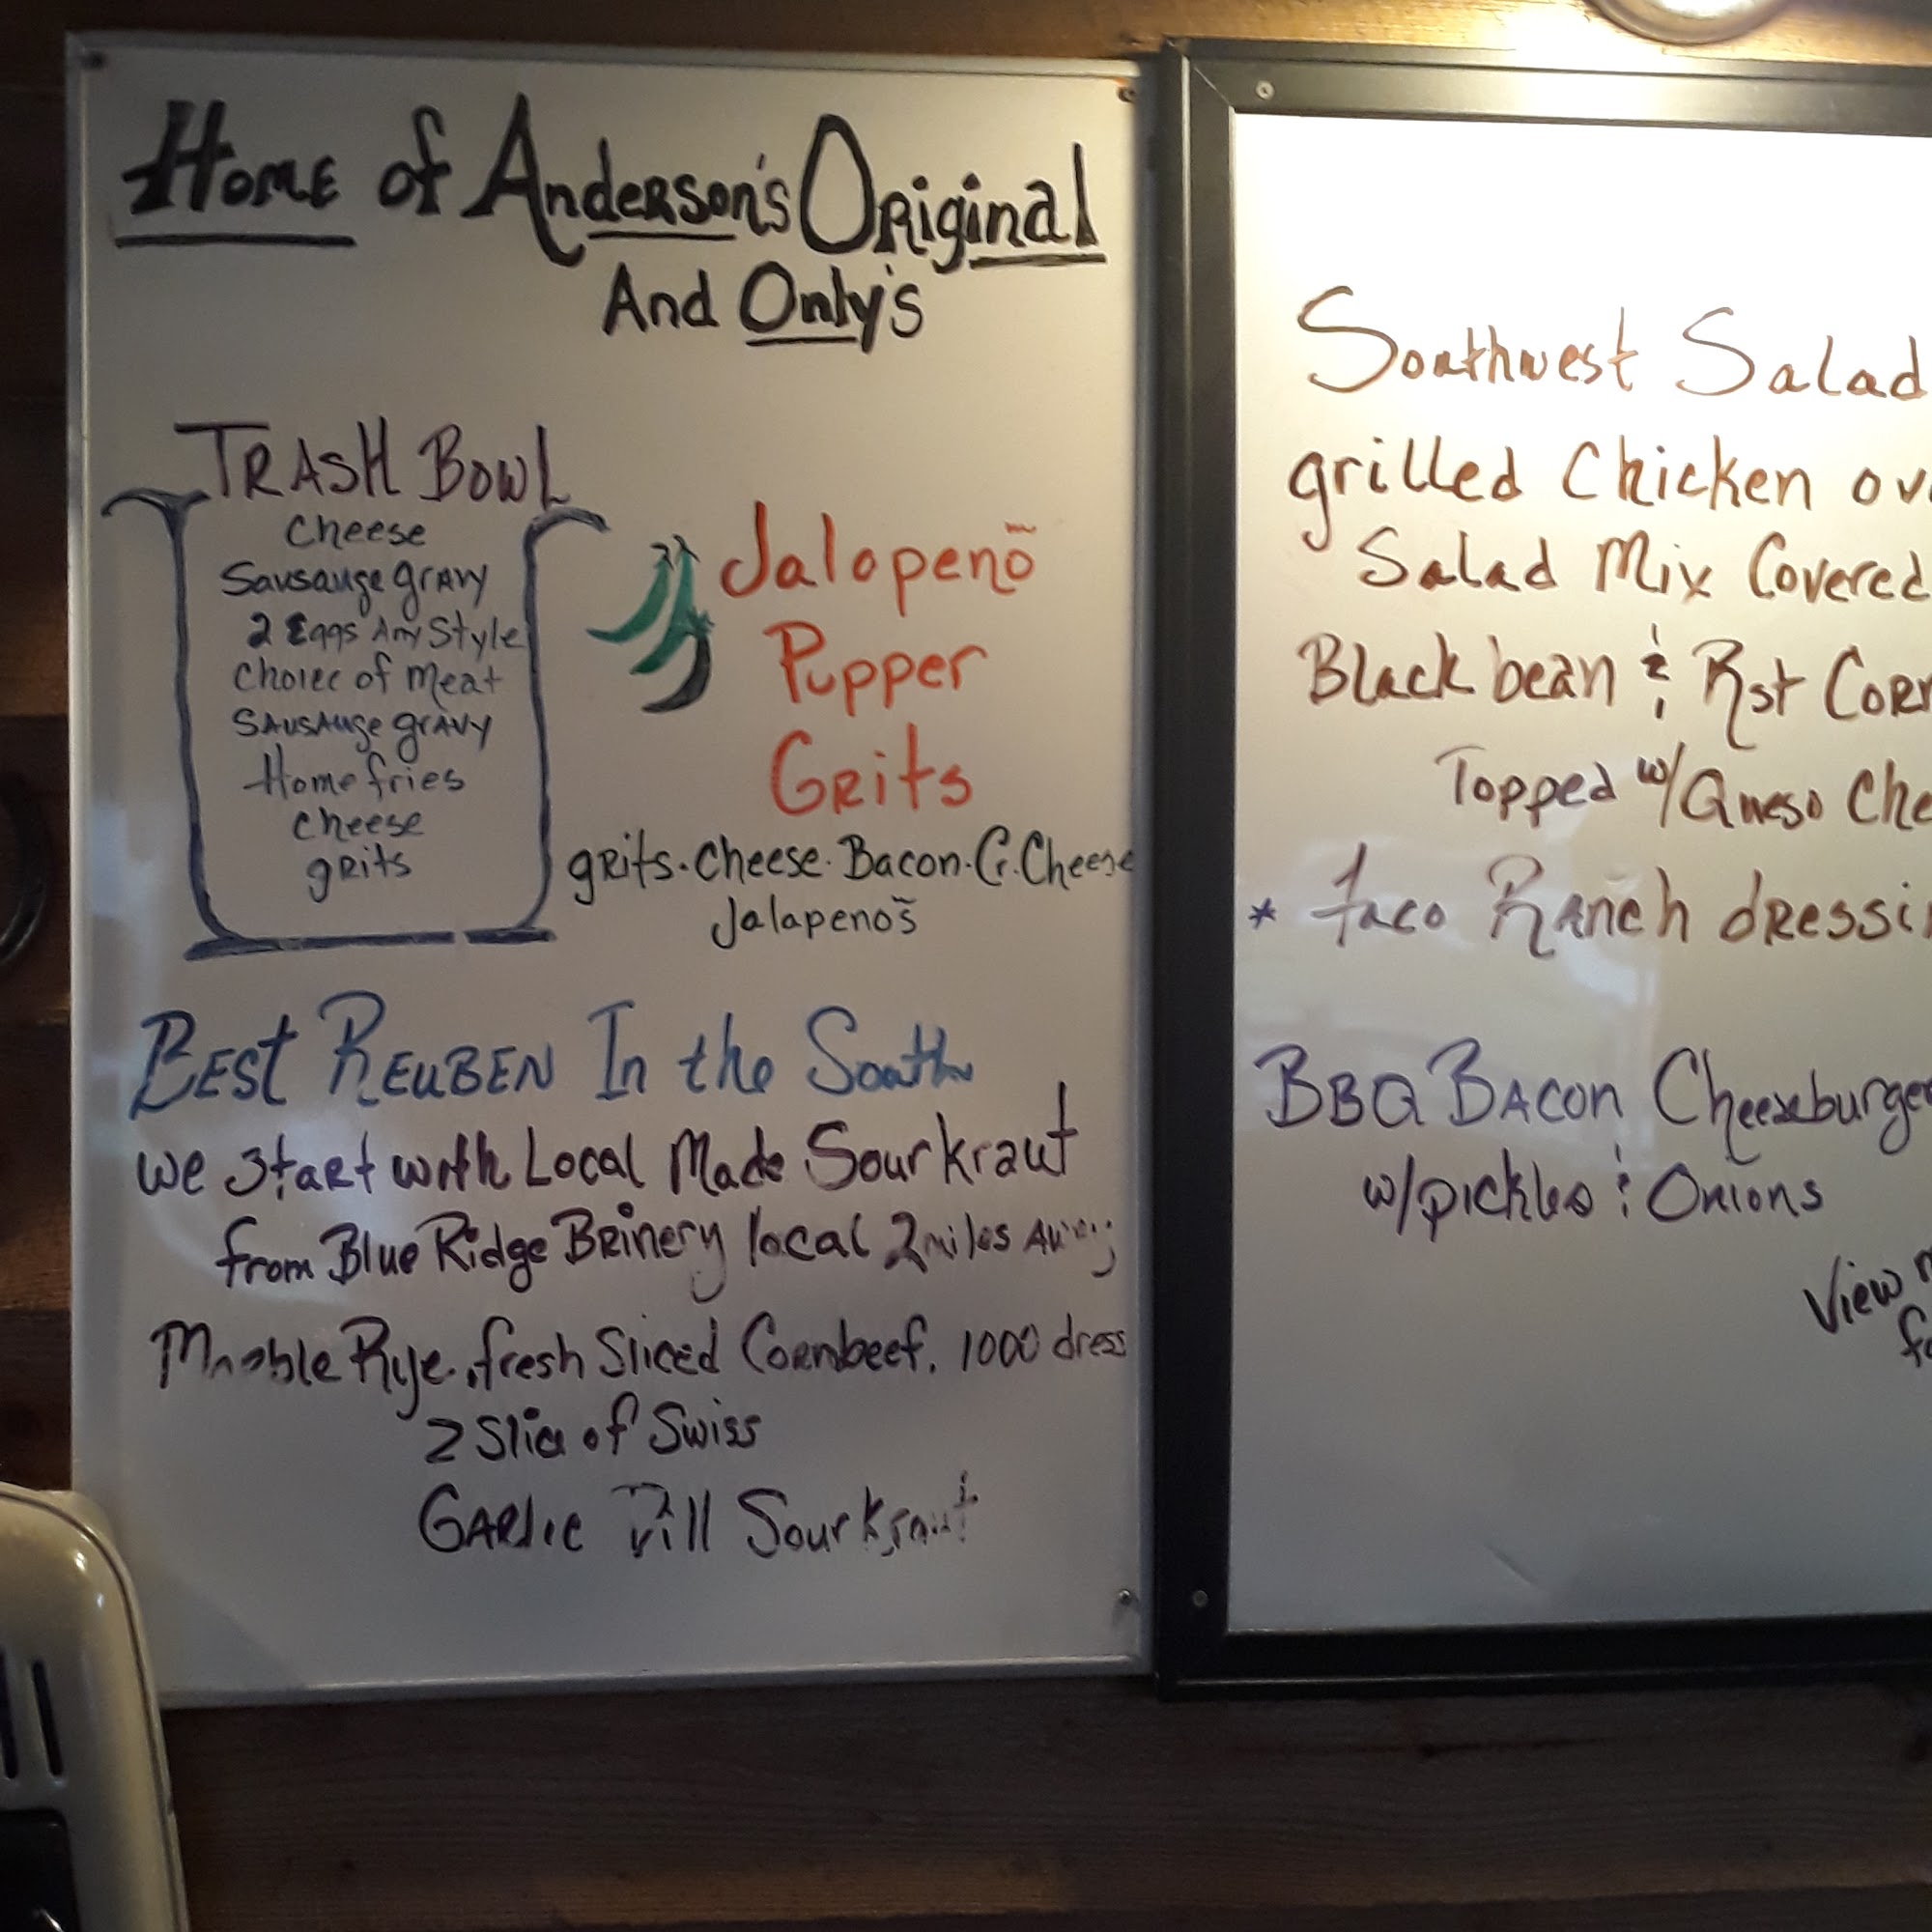 Home of Anderson's Original
And Only's
TRASH BOWL
Cheese
Sausauge gravy
2 Eggs Any Style
Choice of meat
SAUSAUge gRAVY
Home fries
cheese
gRits
Jalopenõ
Pupper
GRits
gRits. Cheese. Bacon. Cr. Cheese
Jalapenõs
BEST REUBEN In the South
we start with Local Made Sourkraut
from Blue Ridge Brinery local 2 miles Away
Marble Rye, fresh Sliced Cornbeef, 1000 dress
2 Slice of Swiss
GARlic Dill Sourkraut
Southwest Salad
grilled Chicken
Salad Mix Covered
Black bean & Rst
Topped w/ Queso
* taco Ranch
BBQ BACON Cheeseburger
w/ pickles & Onions
View